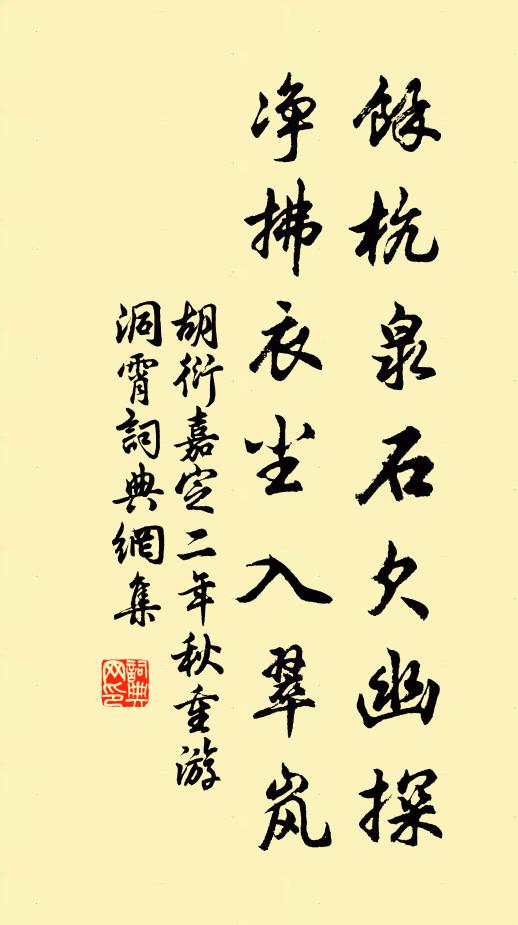 餘杭泉石欠幽探
净拂衣尘入翠岚
胡衍嘉定二年秋重游
洞霄詞典網集
詞典网印